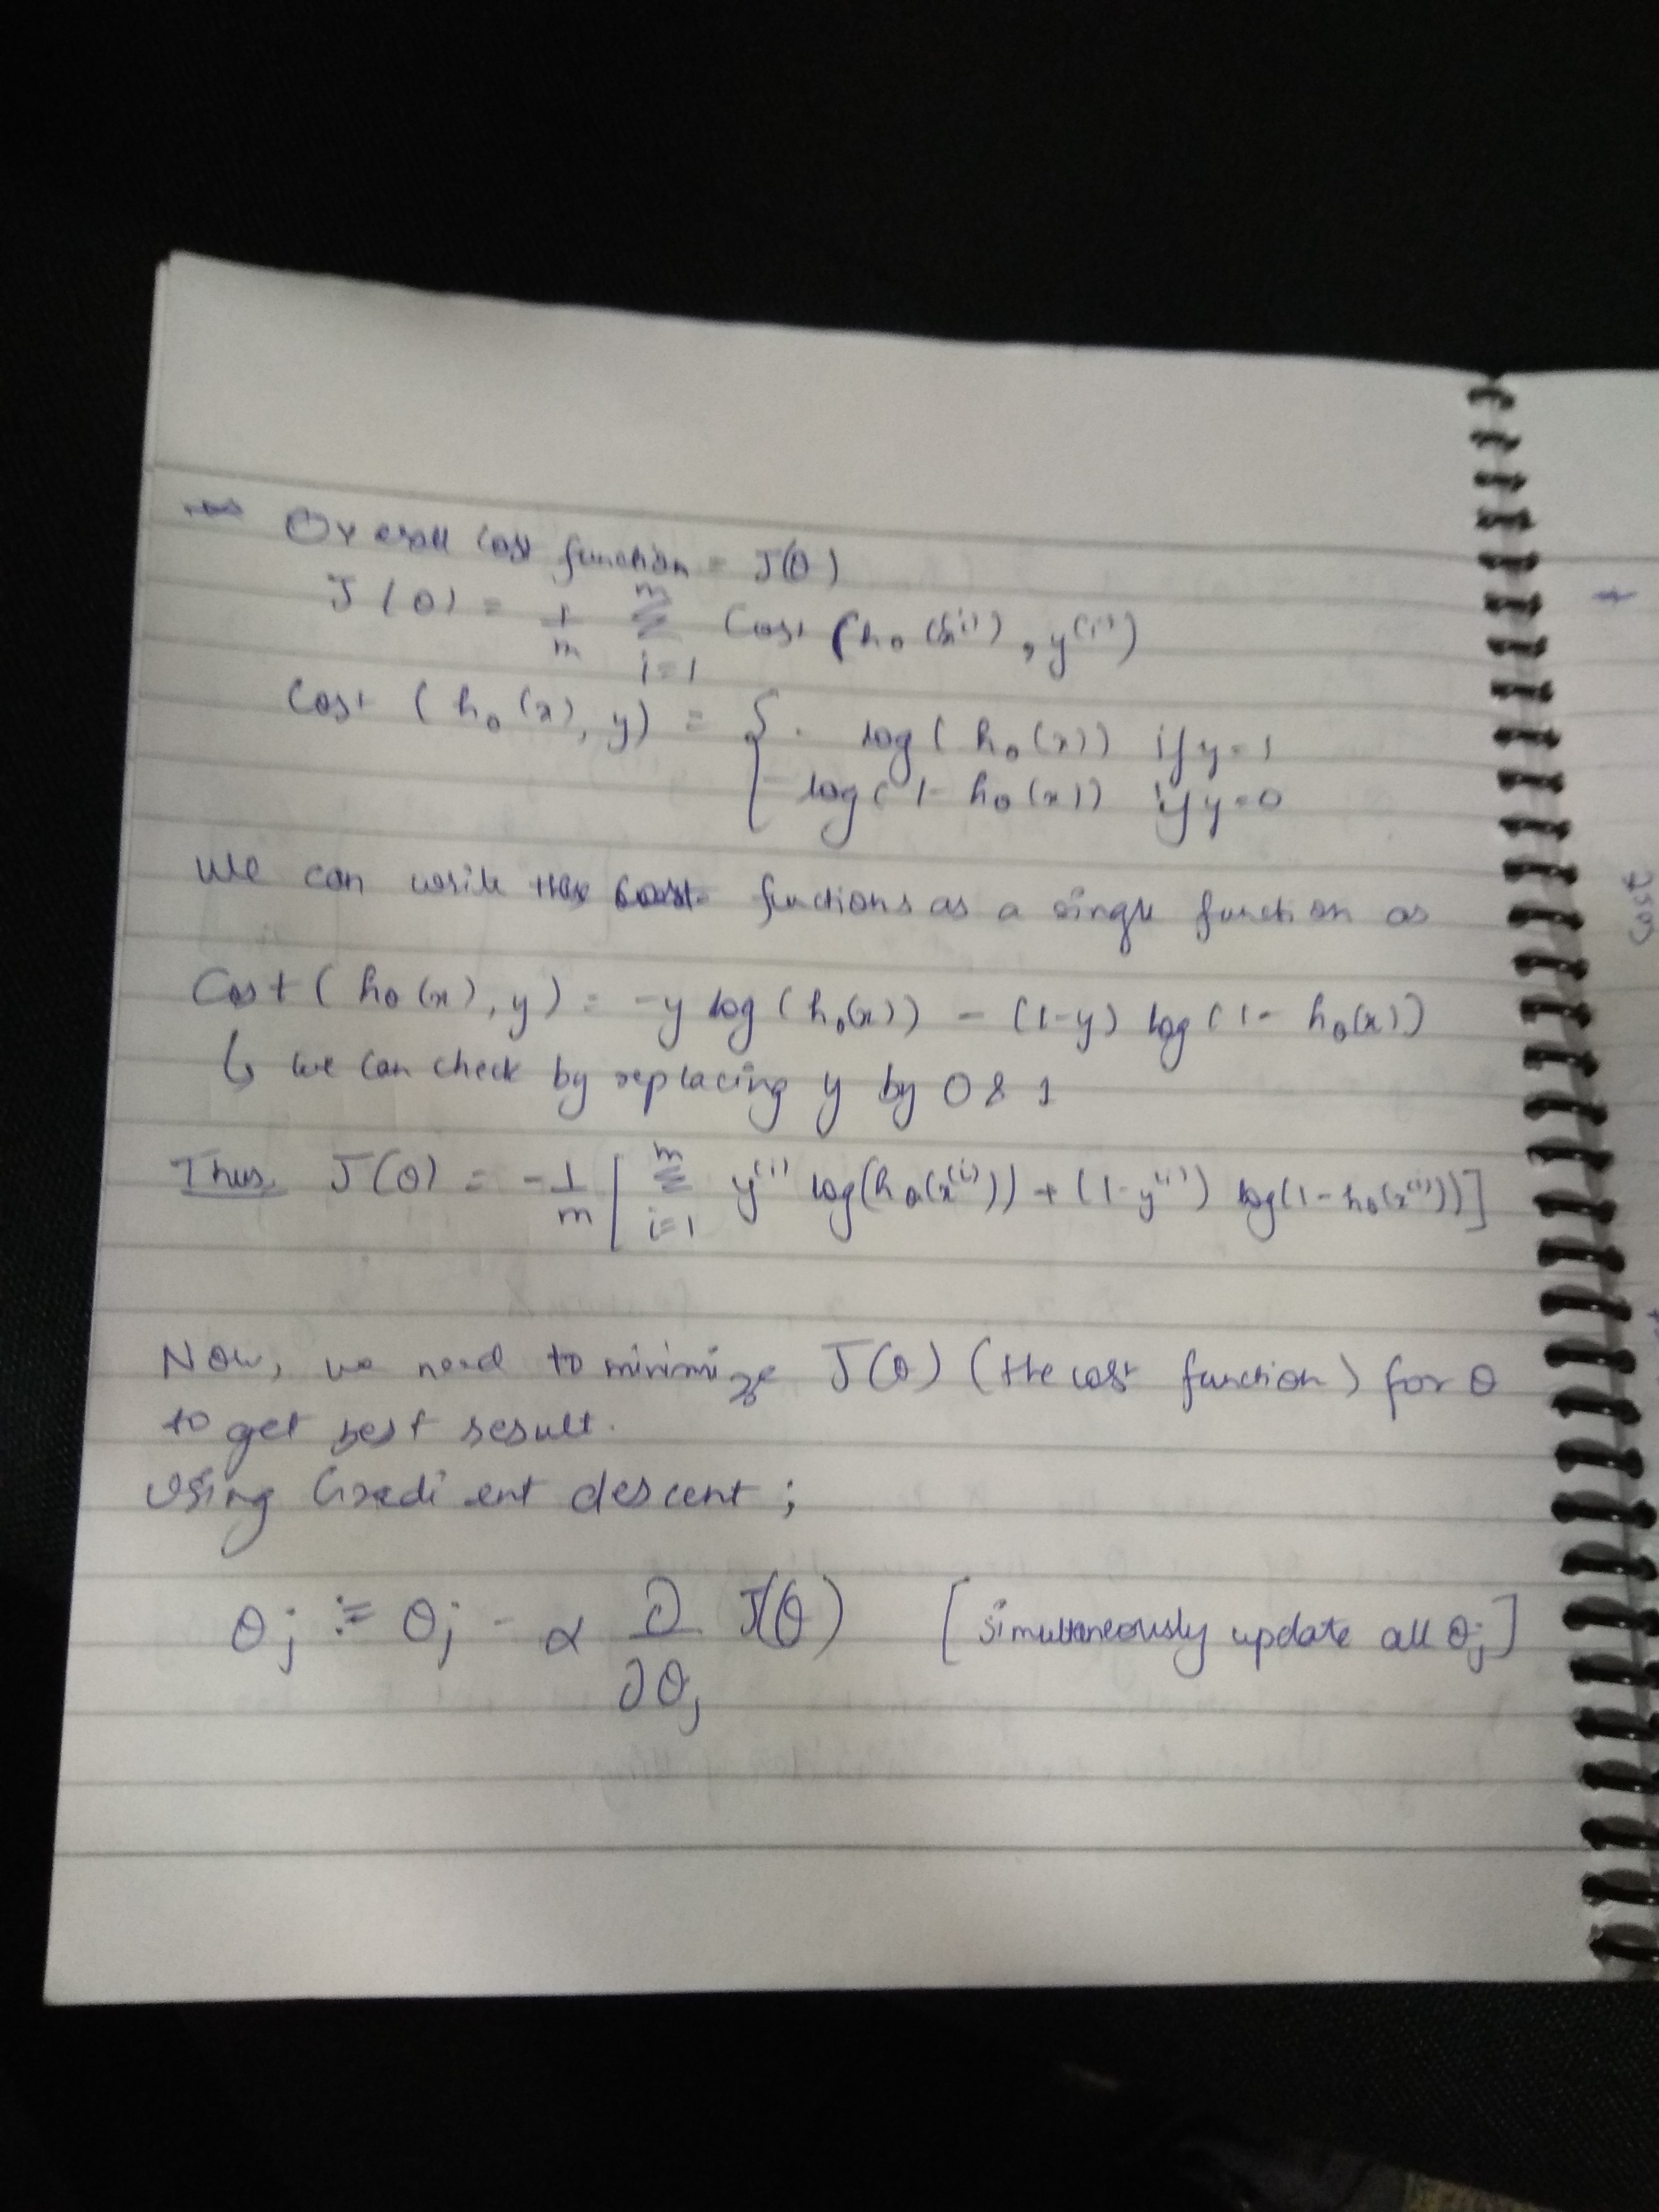 Overall cost function = J(θ)
J(θ) = 1/m Σ_{i=1}^{m} Cost (hθ(x⁽ⁱ⁾), y⁽ⁱ⁾)
Cost (hθ(x), y) = { - log(hθ(x)) if y=1
- log(1-hθ(x)) if y=0
We can write the functions as a single function as
Cost (hθ(x), y) = -y log(hθ(x)) - (1-y) log(1- hθ(x))
↳ we can check by replacing y by 0 & 1
Thus, J(θ) = -1/m [ Σ_{i=1}^{m} y⁽ⁱ⁾ log(hθ(x⁽ⁱ⁾)) + (1-y⁽ⁱ⁾) log(1-hθ(x⁽ⁱ⁾))]
Now, we need to minimize J(θ) (the cost function) for θ
to get best result.
Using Gradient descent;
θj := θj - α ∂/∂θj J(θ) [simultaneously update all θj]
Cost